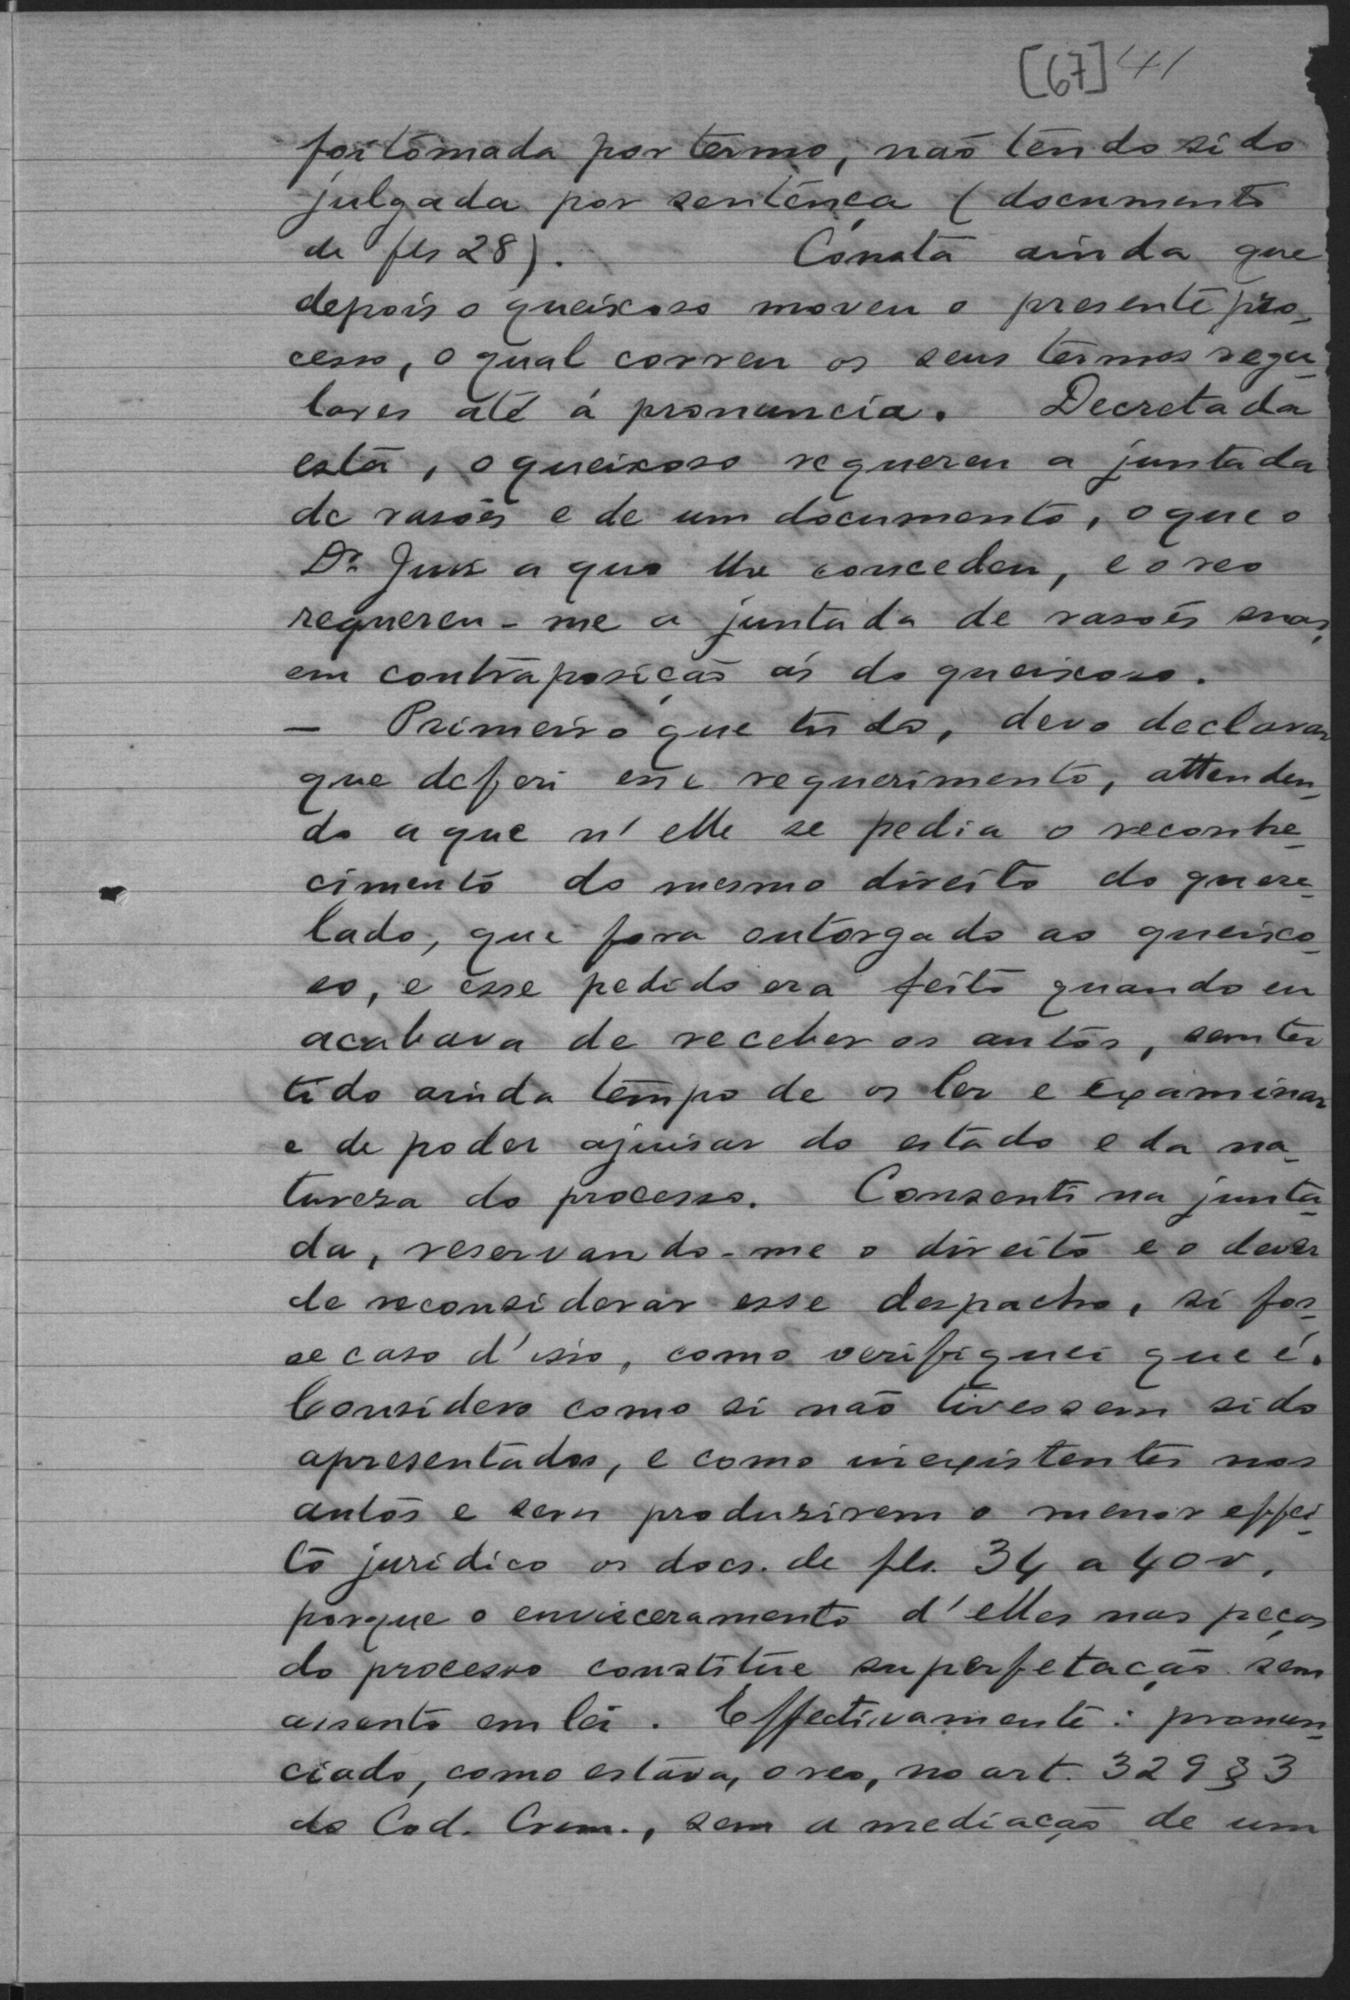 [67] 41
foi tomada por termo, não tendo sido
julgada por sentença (documento
de fls 28). Consta ainda que
depois o queixoso moveu o presente pro-
cesso, o qual correu os seus termos regu-
lares até á pronuncia. Decretada
esta, o queixoso requereu a juntada
de rasões e de um documento, o que o
Dr. Juiz a quo lhe concedeu, e o reo
requereu-me a juntada de rasões suas,
em contraposição ás do queixoso.
— Primeiro que tudo, devo declarar
que deferi esse requerimento, attenden-
do a que n'elle se pedia o reconhe-
cimento do mesmo direito do quere-
lado, que fora outorgado ao queixo-
so, e esse pedido era feito quando eu
acabava de receber os autos, sem ter
tido ainda tempo de os ler e examinar
e de poder ajuisar do estado e da na-
turesa do processo. Consenti na junta-
da, reservando-me o direito e o dever
de reconsiderar esse despacho, si fos-
se caso d'isso, como verifiquei que é.
Considero como si não tivessem sido
apresentados, e como inexistentes nos
autos e sem produsirem o menor effei-
to juridico os docs. de fls. 34 a 40v,
porque o envisceramento d'elles nas peças
do processo constitue superfetação sem
assento em lei. Effectivamente: pronun-
ciado, como estava, o reo, no art. 329 § 3
do Cod. Crim., sem a mediação de um